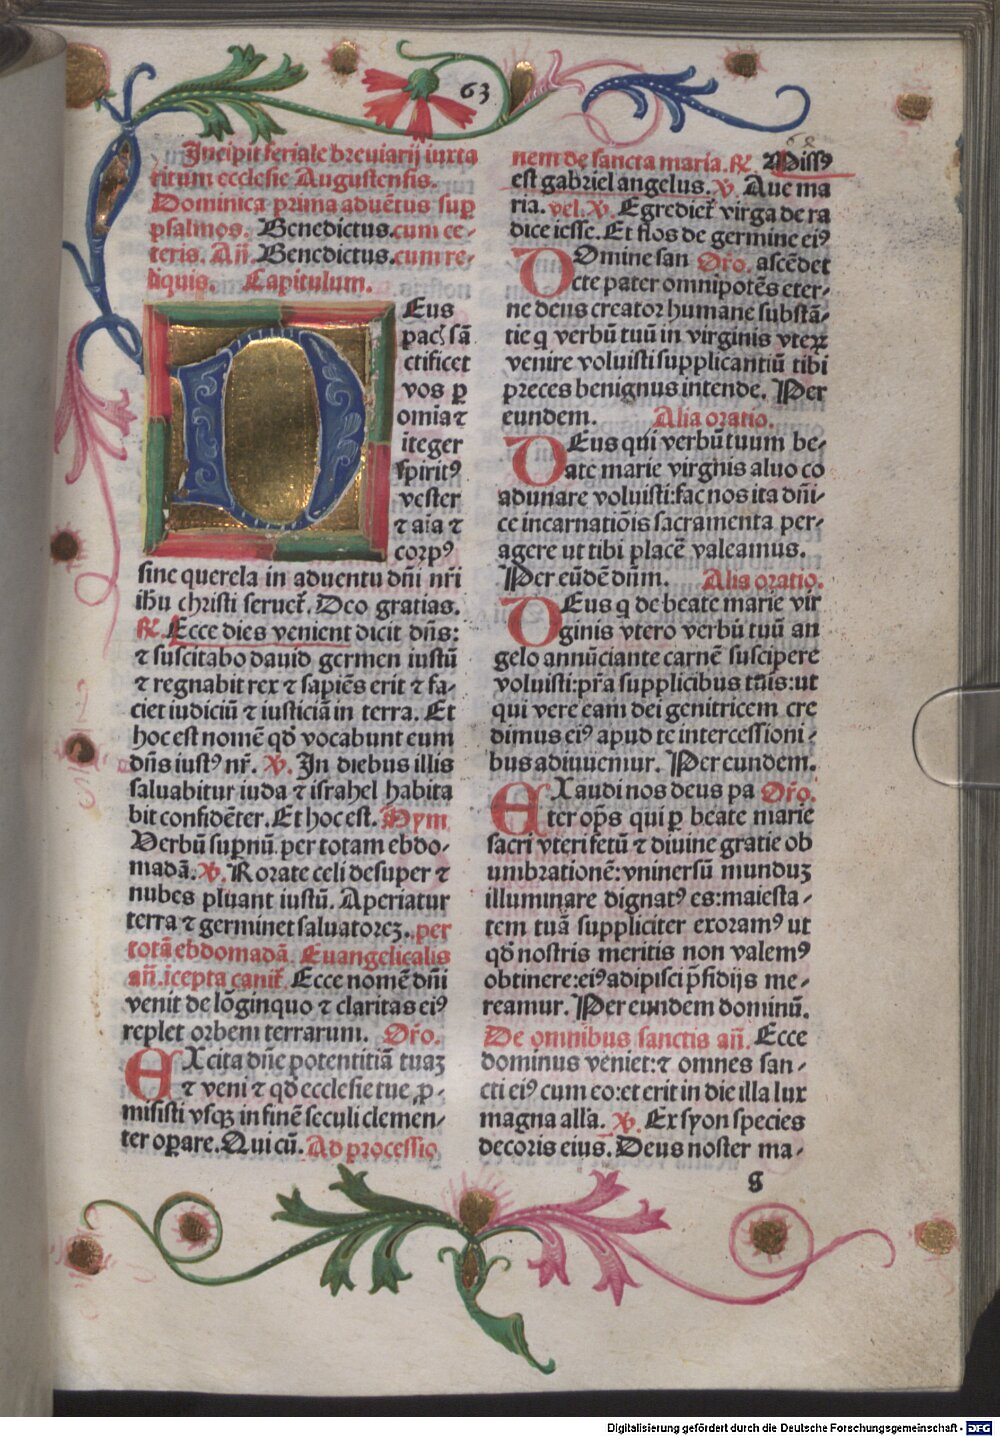 63
Incipit feriale breviarij iuxta
ritum ecclesie Augustensis.
Dominica prima aduētus sup
psalmos. Benedictus. cum ce-
teris. Añ. Benedictus. cum re-
liquis. Capitulum.
DEus
pacꝭ sā
ctificet
vos ꝑ
omīa ⁊
īteger
spiritꝯ
vester
⁊ aīa ⁊
corpꝯ
sine querela in aduentu dñi nr̄i
ihu christi seruet᷑. Deo gratias.
℟. Ecce dies venient dicit dñs:
⁊ suscitabo dauid germen iustū
⁊ regnabit rex ⁊ sapiēs erit ⁊ fa-
ciet iudiciū ⁊ iusticiā in terra. Et
hoc est nomē qd̄ vocabunt eum
dñs iustꝯ nr̄. ℣. In diebus illis
saluabitur iuda ⁊ israhel habita
bit confidēter. Et hoc est. Hym
Verbū supnū. per totam ebdo-
madā. ℣. Rorate celi desuper ⁊
nubes pluant iustū. Aperiatur
terra ⁊ germinet saluatorez. per
totā ebdomadā. Euangelicalis
añ. icepta canit᷑. Ecce nomē dñi
venit de lōginquo ⁊ claritas eiꝯ
replet orbem terrarum. Or̄o.
EXcita dñe potentitiā tuaz
⁊ veni ⁊ qd̄ ecclesie tue ꝓ-
misisti vsqz in finē seculi clemen-
ter oꝑare. Qui cū. Ad processio
nem de sancta maria. ℟. Missꝯ
est gabriel angelus. ℣. Aue ma
ria. vel. ℣. Egrediet᷑ virga de ra
dice iesse. Et flos de germine eiꝯ
DOmine san Or̄o. ascēdet
cte pater omnipotēs eter-
ne deus creator humane substā-
tie q verbū tuū in virginis vteꝝ
venire voluisti supplicantiū tibi
preces benignus intende. Per
eundem. Alia oratio.
DEus qui verbū tuum be-
ate marie virginis aluo co
adunare voluisti: fac nos ita dñi-
ce incarnatiōis sacramenta per-
agere ut tibi placē valeamus.
Per eūdē dñm. Alia oratio.
DEus q de beate marie vir
ginis vtero verbū tuū an
gelo annūciante carnē suscipere
voluisti: pr̄a supplicibus tuis: ut
qui vere eam dei genitricem cre
dimus eiꝯ apud te intercessioni-
bus adiuuemur. Per eundem.
EXaudi nos deus pa Or̄o.
ter op̄s qui ꝑ beate marie
sacri vteri fetū ⁊ diuine gratie ob
umbrationē: vniuersū munduz
illuminare dignatꝯ es: maiesta-
tem tuā suppliciter exoramꝯ ut
qd̄ nostris meritis non valemꝯ
obtinere: eiꝯ adipisci p̄sidijs me-
reamur. Per eundem dominū.
De omnibus sanctis añ. Ecce
dominus veniet: ⁊ omnes san-
cti eiꝯ cum eo: et erit in die illa lux
magna alla. ℣. Ex syon species
decoris eius. Deus noster ma-
g
Digitalisierung gefördert durch die Deutsche Forschungsgemeinschaft - DFG